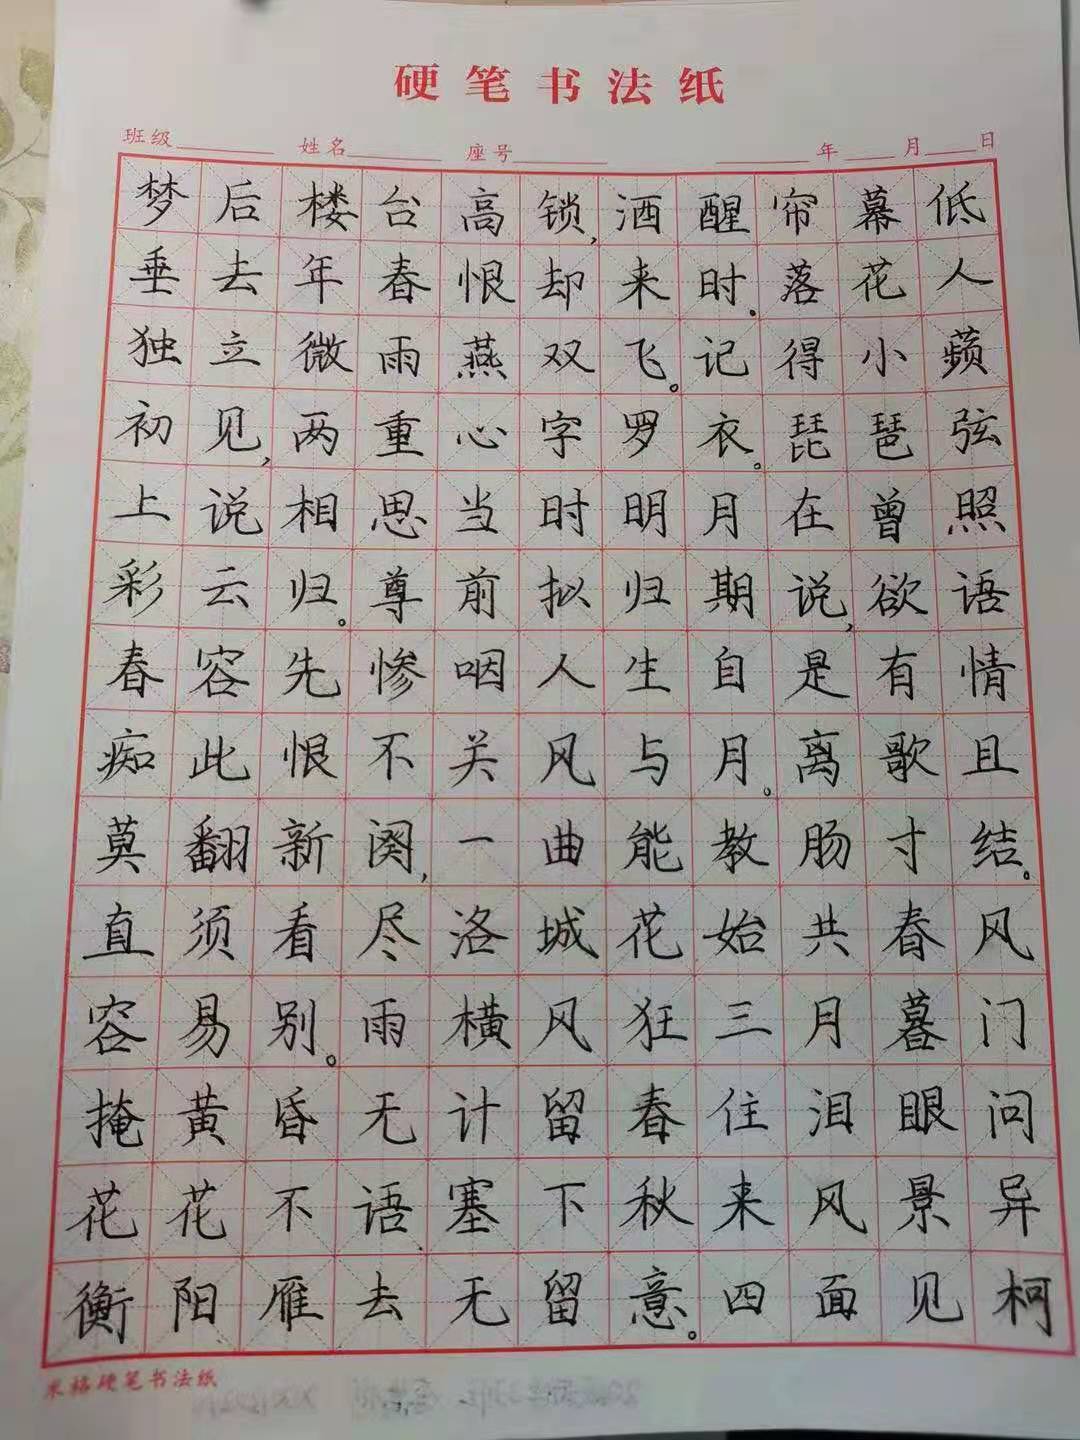 硬笔书法纸
班级 姓名 座号 年 月 日
梦后楼台高锁,酒醒帘幕低
垂去年春恨却来时.落花人
独立微雨燕双飞。记得小蘋
初见,两重心字罗衣。琵琶弦
上说相思当时明月在曾照
彩云归。尊前拟归期说,欲语
春容先惨咽人生自是有情
痴此恨不关风与月。离歌且
莫翻新阕,一曲能教肠寸结。
直须看尽洛城花始共春风
容易别。雨横风狂三月暮门
掩黄昏无计留春住泪眼问
花花不语.塞下秋来风景异
衡阳雁去无留意。四面见柯
米格硬笔书法纸